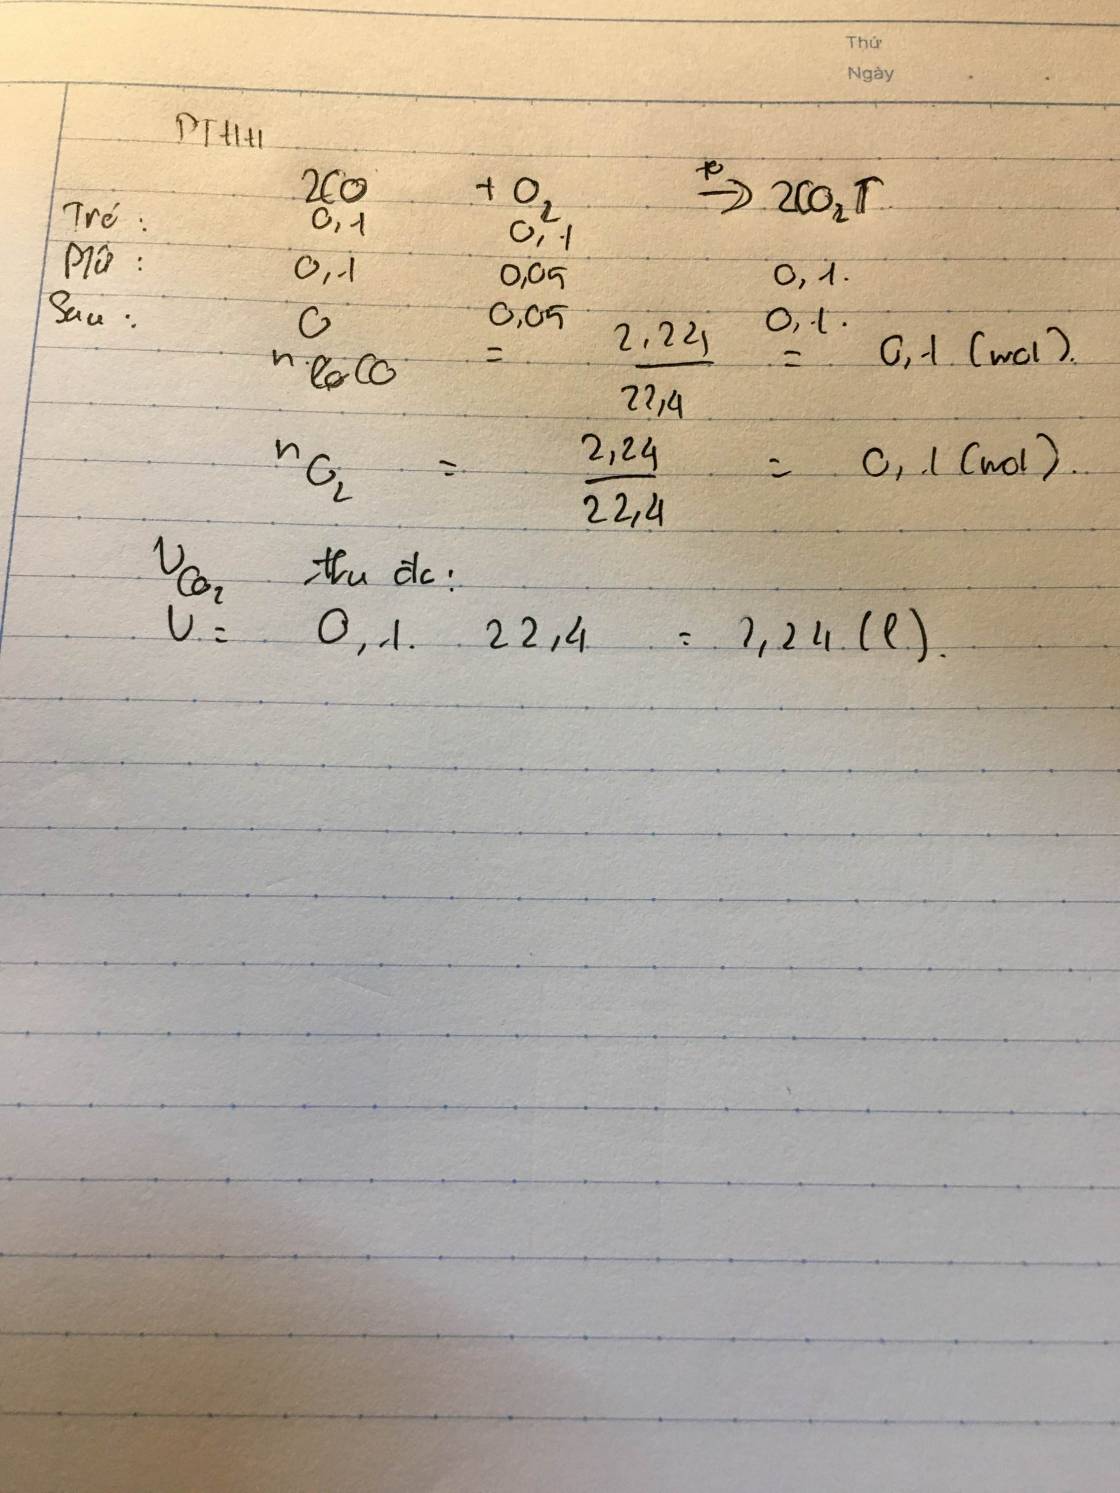 Thứ
Ngày
PTHH
2CO + O₂ →(t⁰) 2CO₂↑
Trc : 0,1 0,1
PƯ : 0,1 0,05 0,1.
Sau : 0 0,05 0,1.
n CO = 2,24/22,4 = 0,1 (mol).
n O₂ = 2,24/22,4 = 0,1 (mol).
V CO₂ thu đc :
V = 0,1. 22,4 = 2,24 (l).